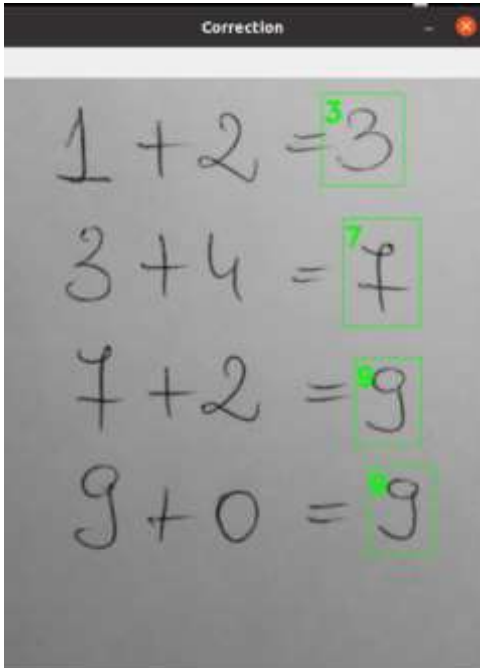 Correction
1 + 2 = 3 3
3 + 4 = 7 7
7 + 2 = 9 9
9 + 0 = 9 9